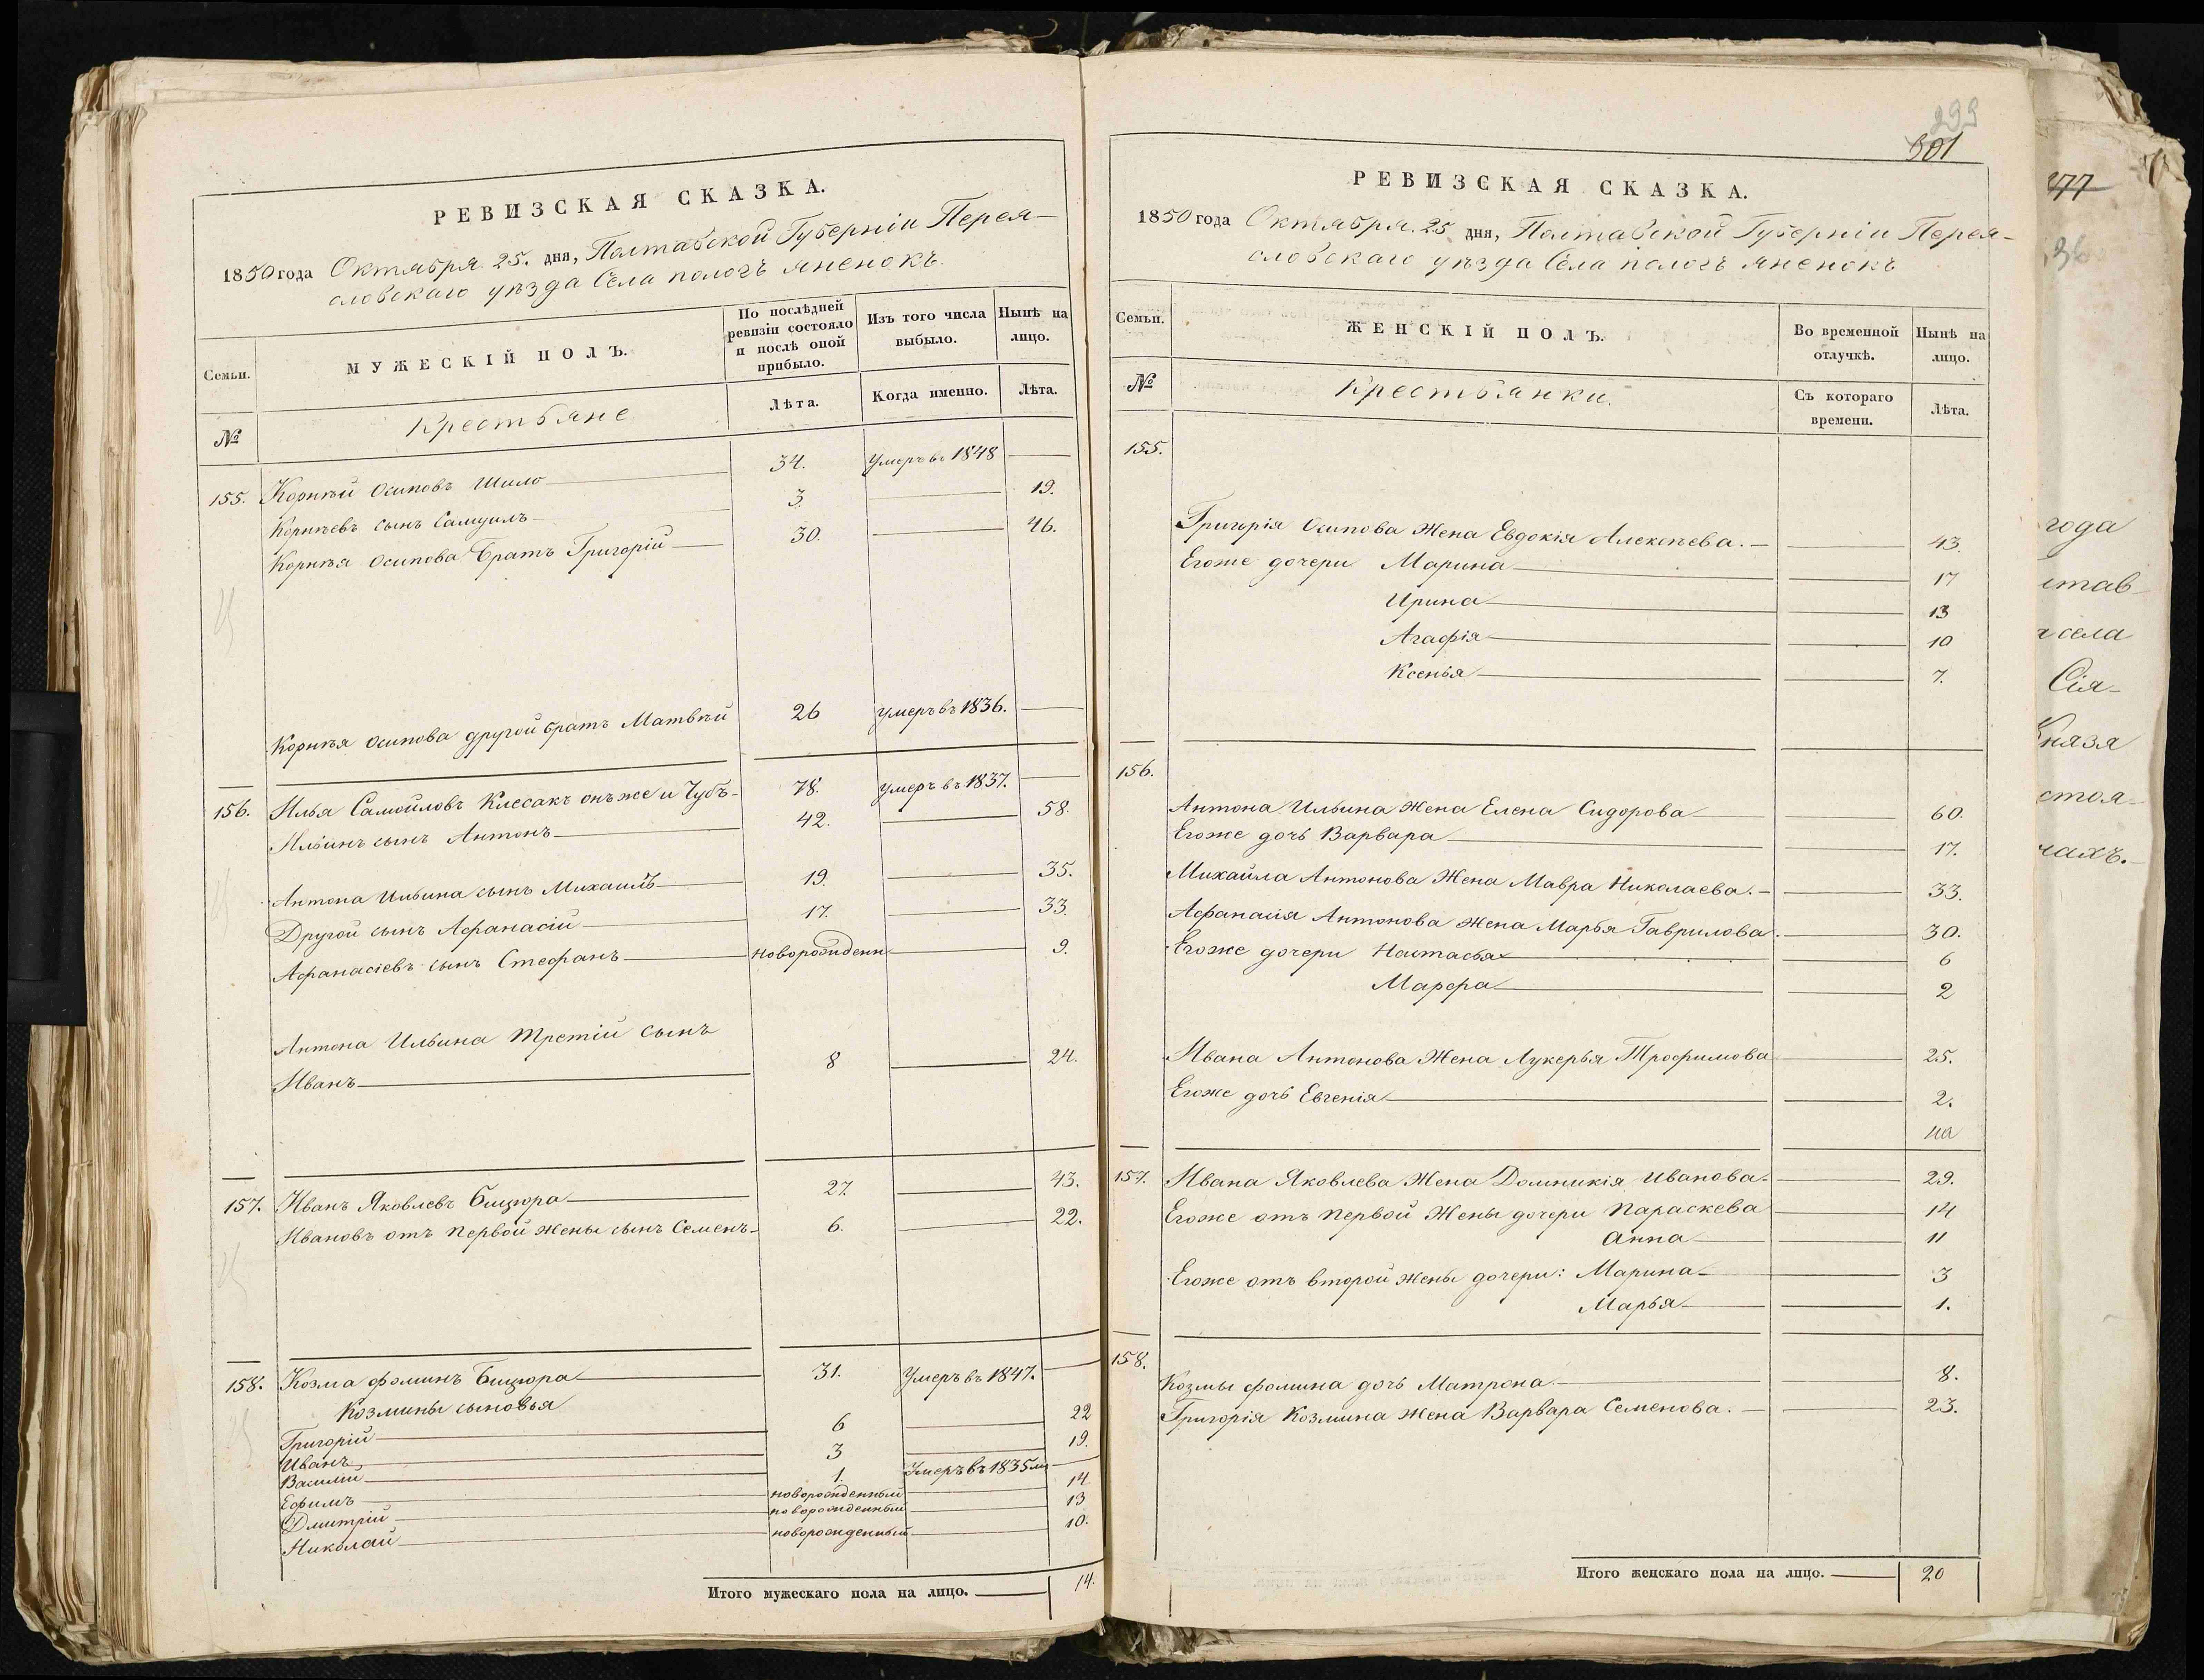 РЕВИЗСКАЯ СКАЗКА.
1850 года Октября 25. дня, Полтавской Губерніи Перея-
словскаго уѣзда Села пологъ яненокъ.
Семьи.
МУЖЕСКІЙ ПОЛЪ.
По послѣдней ревизіи состояло и послѣ оной прибыло.
Изъ того числа выбыло.
Нынѣ на лицо.
№
Крестьяне
Лѣта.
Когда именно.
Лѣта.
155. Корнѣй Осиповъ Шило 34. Умеръ въ 1848
Корнѣевъ сынъ Самуилъ 3. 19.
Корнѣя Осипова братъ Григорій 30. 46.
Корнѣя Осипова другой братъ Матвѣй 26 умеръ въ 1836.
156. Илья Самойловъ Клесакъ онъ же и Чубъ 78. умеръ въ 1837.
Ильинъ сынъ Антонъ 42. 58.
Антона Ильина сынъ Михаилъ 19. 35.
Другой сынъ Афанасій 17. 33.
Афанасіевъ сынъ Стефанъ новорожденн 9.
Антона Ильина третій сынъ
Иванъ 8 24.
157. Иванъ Яковлевъ Бицюра 27. 43.
Ивановъ отъ первой жены сынъ Семенъ 6. 22.
158. Козма Фоминъ Бицюра 31. Умеръ въ 1847.
Козмины сыновья
Григорій 6 22
Иванъ 3 19.
Василій 1. Умеръ въ 1835мъ
Ефимъ новорожденный 14
Дмитрій новорожденный 13
Николай новорожденный 10.
Итого мужескаго пола на лицо. 14.
299
301
РЕВИЗСКАЯ СКАЗКА.
1850 года Октября. 25 дня, Полтавской Губерніи Перея-
словскаго уѣзда Села пологъ яненокъ
Семьи.
ЖЕНСКІЙ ПОЛЪ.
Во временной отлучкѣ.
Нынѣ на лицо.
№
Крестьянки.
Съ котораго времени.
Лѣта.
155.
Григорія Осипова Жена Евдокія Алексѣева. 43.
Егоже дочери Марина 17
Ирина 13
Агафія 10
Ксенья 7.
156.
Антона Ильина Жена Елена Сидорова 60.
Егоже дочь Варвара 17.
Михайла Антонова Жена Мавра Николаева. 33.
Афанасія Антонова Жена Марья Гаврилова. 30.
Егоже дочери Настасья 6
Марфа 2
Ивана Антонова Жена Лукерья Трофимова 25.
Егоже дочь Евгенія 2.
на
157. Ивана Яковлева Жена Домникія Иванова 29.
Егоже отъ первой Жены дочери Параскева 14
Анна 11
Егоже отъ второй жены дочери: Марина 3
Марья 1.
158.
Козмы Фомина дочь Матрона 8.
Григорія Козмина Жена Варвара Семенова. 23.
Итого женскаго пола на лицо. 20
277
36
года
лтав
села
Сія
Князя
стоя
чахъ.